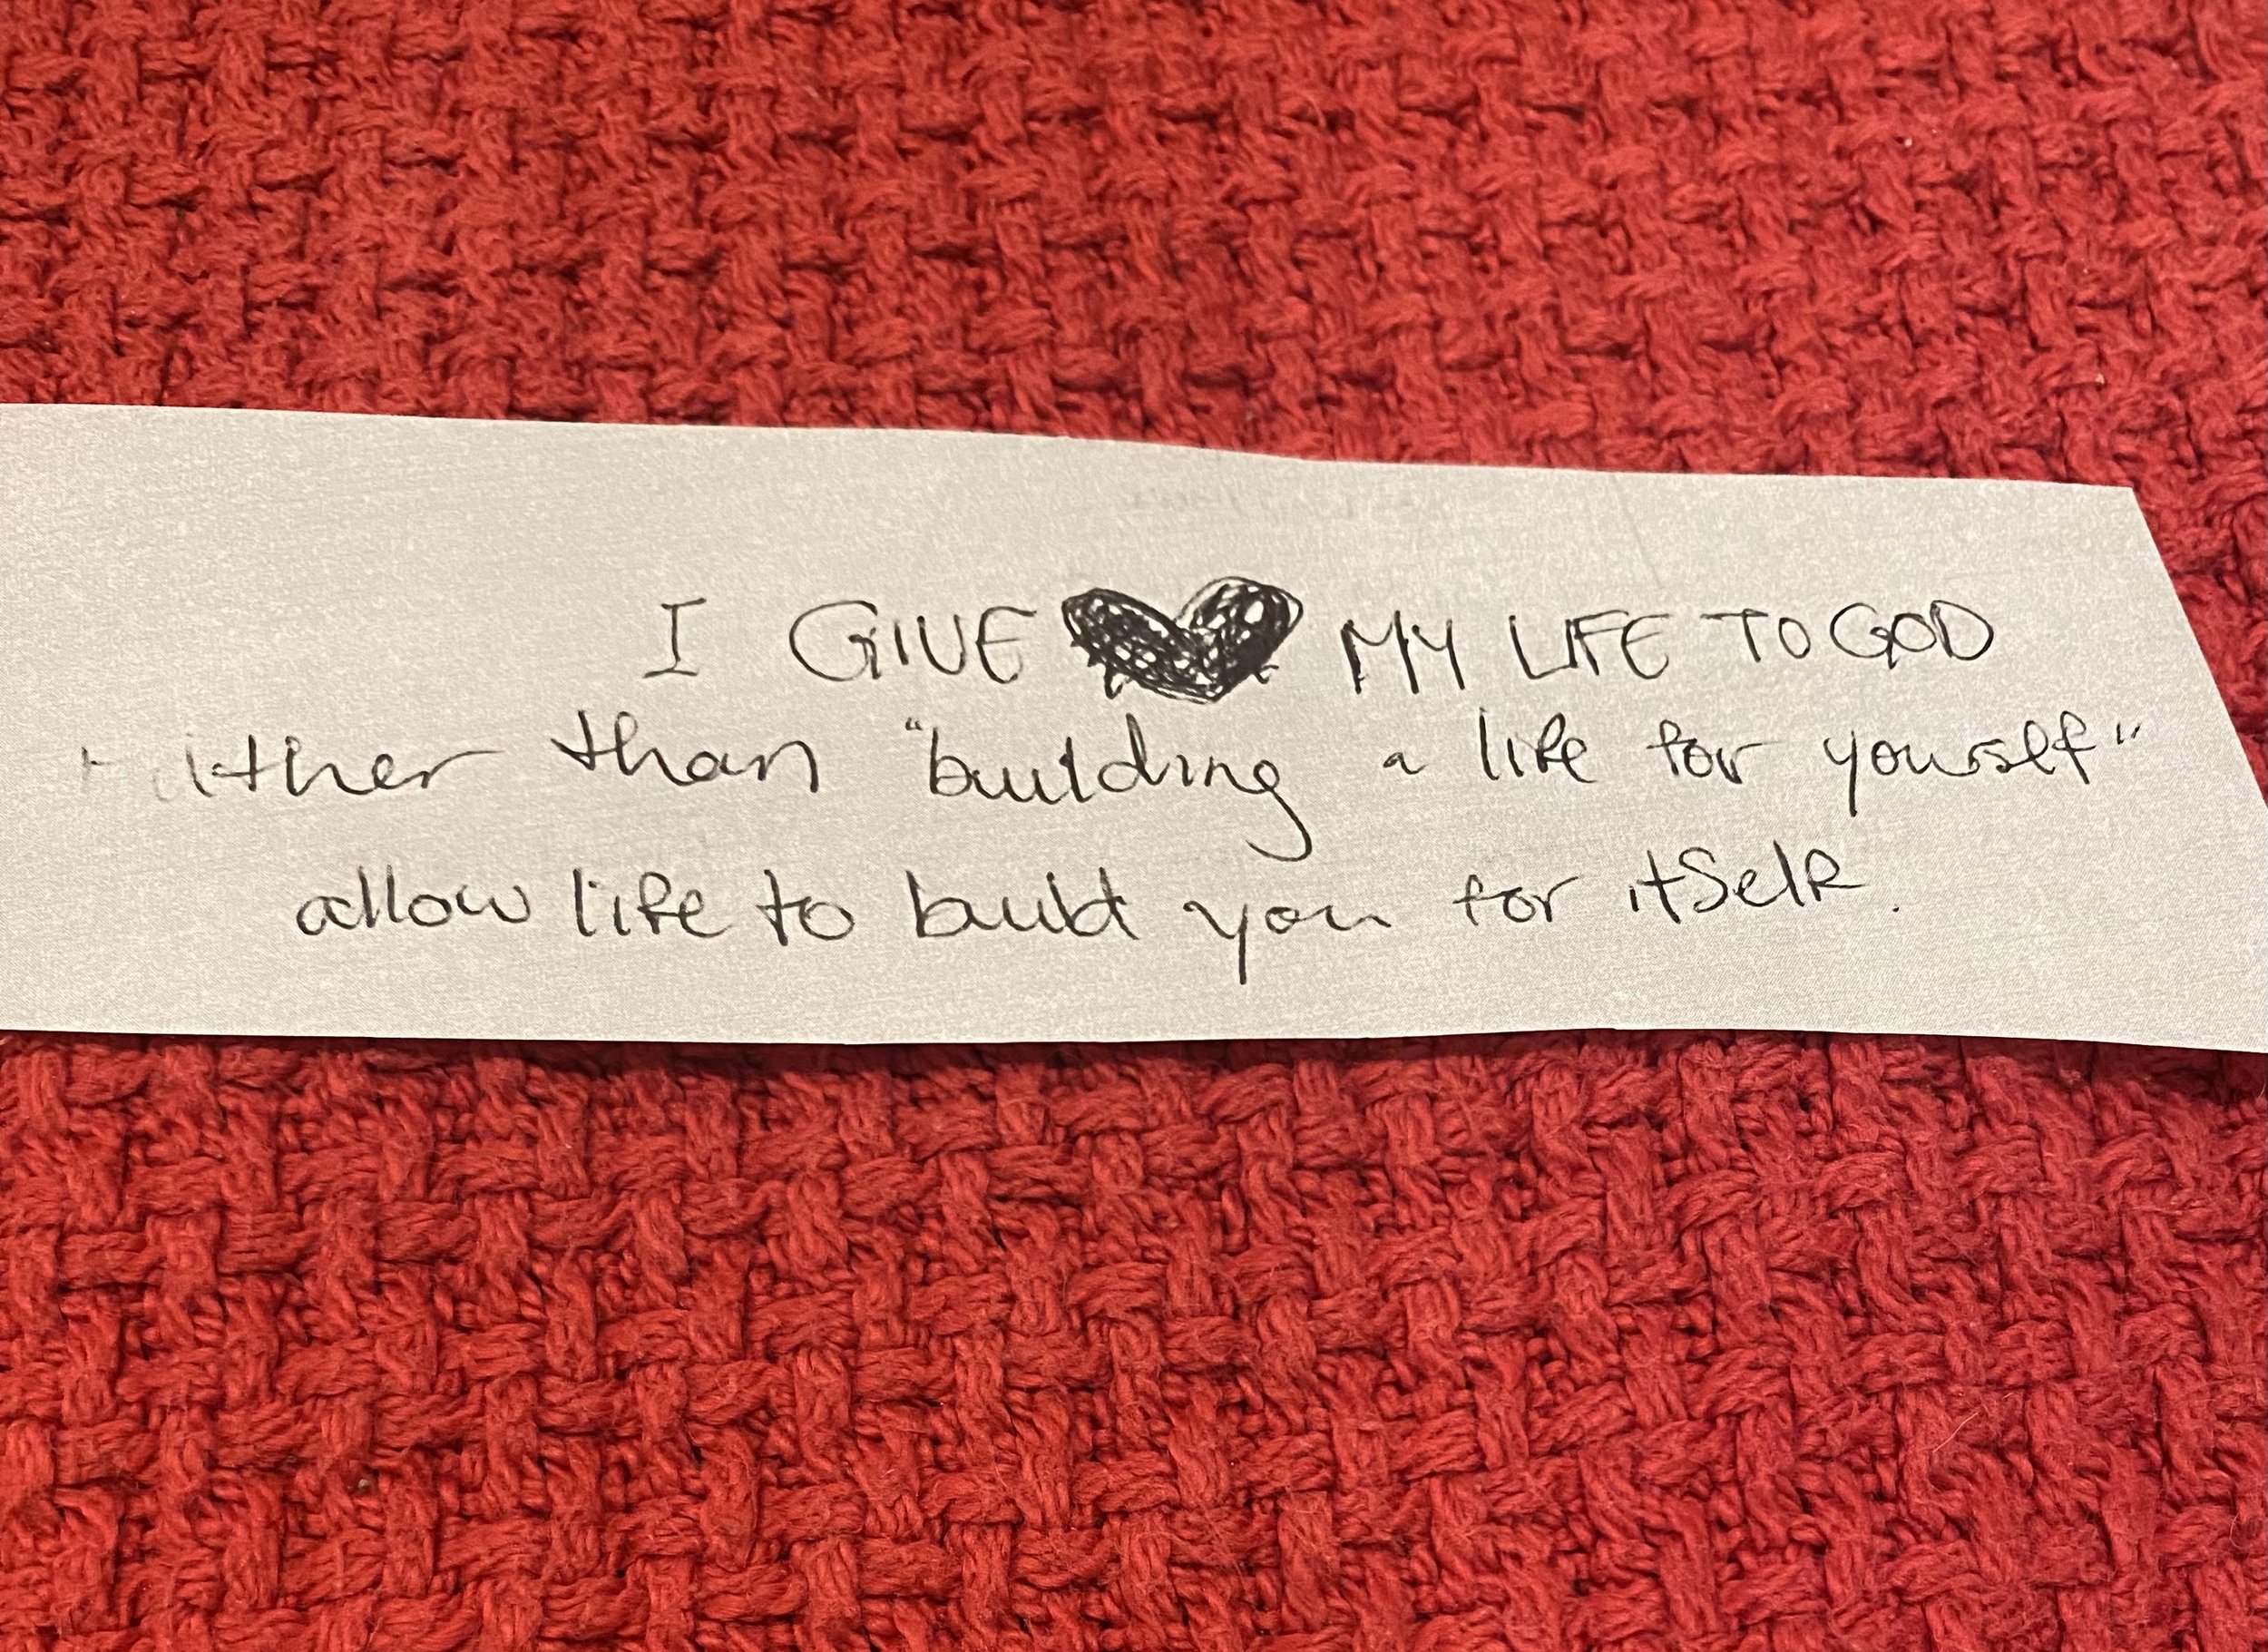 I GIVE MY LIFE TO GOD
rather than "building a life for yourself"
allow life to build you for itself.